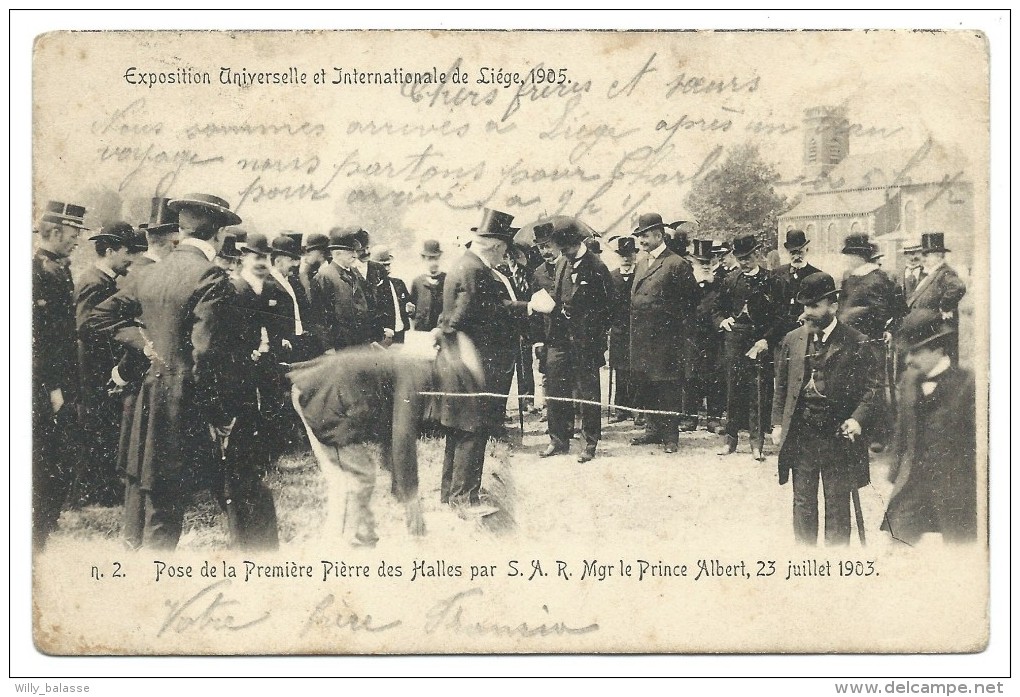 Exposition Universelle et Internationale de Liége, 1905.
Chers frères et sœurs
Nous sommes arrivés a Liège après un
voyage nous partons pour
pour arrivé a
n. 2. Pose de la Première Pièrre des Halles par S. A. R. Mgr le Prince Albert, 23 juillet 1903.
Votre frère
Willy_balasse
www.delcampe.net